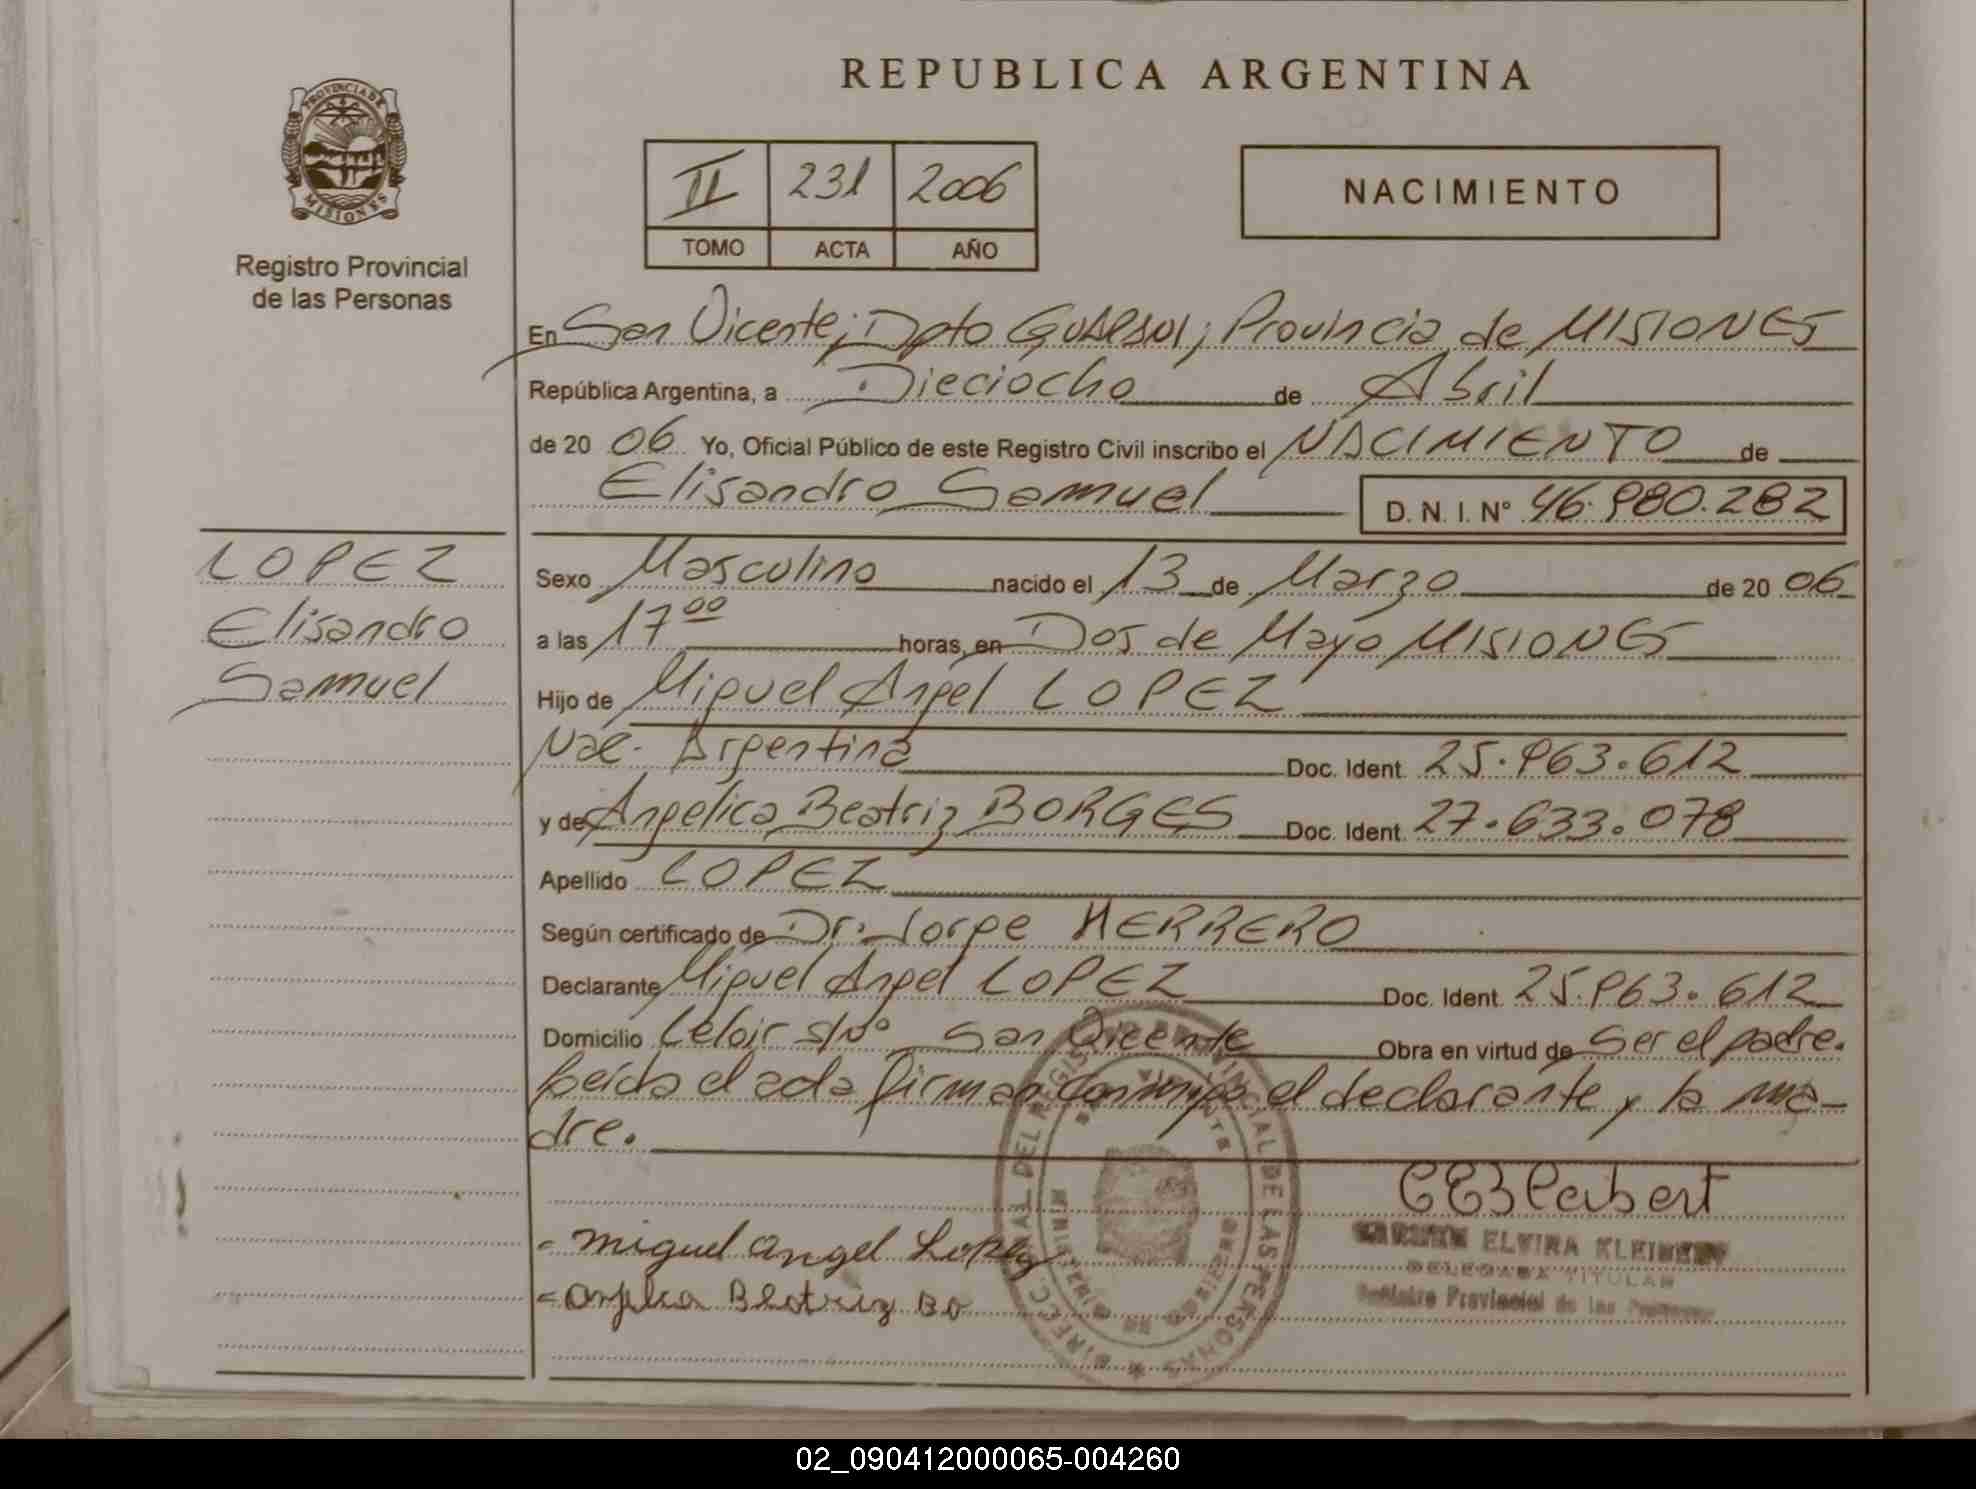 REPUBLICA ARGENTINA
PROVINCIA DE
MISIONES
Registro Provincial
de las Personas
II 231 2006
TOMO ACTA AÑO
NACIMIENTO
En San Vicente; Dpto GUARANI; Provincia de MISIONES
República Argentina, a Dieciocho de Abril
de 20 06 Yo, Oficial Público de este Registro Civil inscribo el NACIMIENTO de
Elisandro Samuel D. N. I. Nº 46.980.282
LOPEZ
Elisandro
Samuel
Sexo Masculino nacido el 13 de Marzo de 20 06
a las 17 00 horas, en Dos de Mayo MISIONES
Hijo de Miguel Angel LOPEZ
Nac. Argentina Doc. Ident. 25.963.612
y de Angelica Beatriz BORGES Doc. Ident. 27.633.078
Apellido LOPEZ
Según certificado de Dr. Jorge HERRERO
Declarante Miguel Angel LOPEZ Doc. Ident. 25.963.612
Domicilio Leloir s/Nº San Vicente Obra en virtud de Ser el padre.
Leida el acta firman conmigo el declarante y la ma-
dre.
Miguel Angel Lopez
Beatriz Bo
ELVIRA KLEINERT
DELEGADA TITULAR
Registro Provincial de las Personas
DIREC. GRAL. DEL REGISTRO PROVINCIAL DE LAS PERSONAS
MINISTERIO DE GOBIERNO
SAN VICENTE
02_090412000065-004260